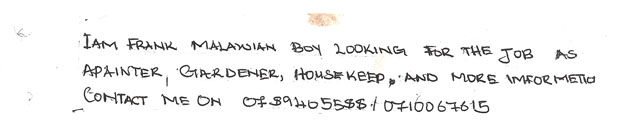 IAM FRANK MALAWIAN BOY LOOKING FOR THE JOB AS
APAINTER, GARDENER, HOUSEKEEP, AND MORE IMFORMETIO
CONTACT ME ON 0710067615